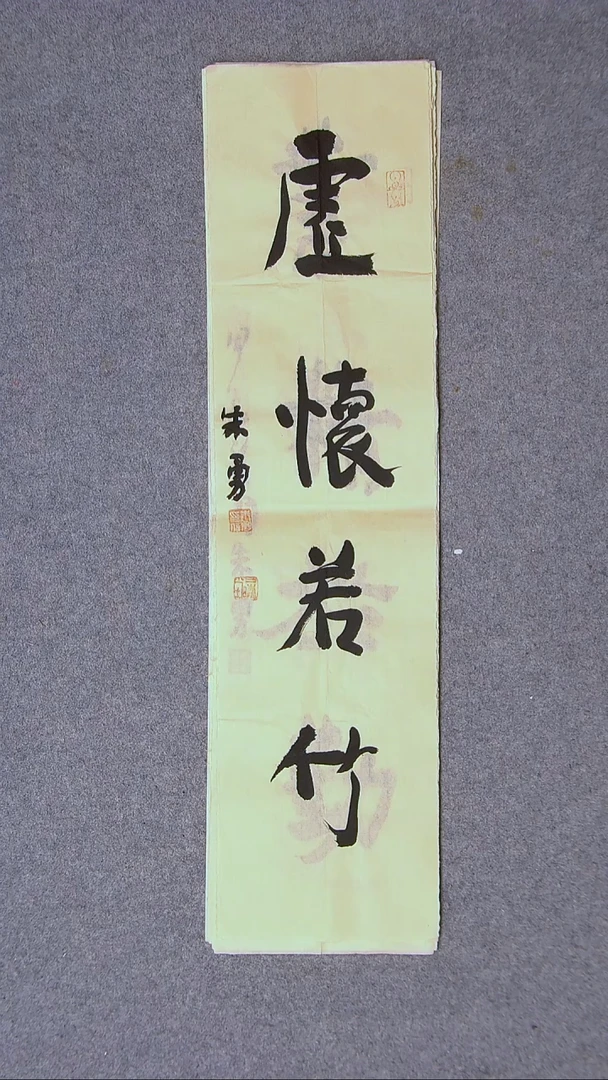 虛懷若竹
朱勇